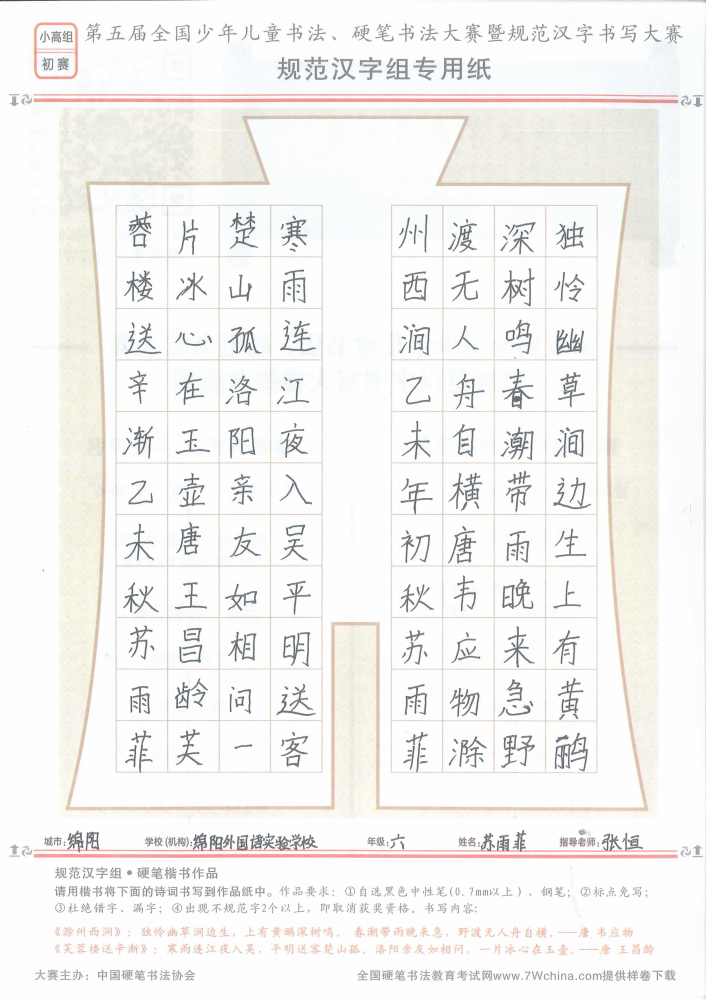 小高组
初赛
第五届全国少年儿童书法、硬笔书法大赛暨规范汉字书写大赛
规范汉字组专用纸
独怜幽草涧边生上有黄鹂
深树鸣春潮带雨晚来急野
渡无人舟自横唐韦应物滁
州西涧乙未年初秋苏雨菲
寒雨连江夜入吴平明送客
楚山孤洛阳亲友如相问一
片冰心在玉壶唐王昌龄芙
蓉楼送辛渐乙未秋苏雨菲
城市:绵阳 学校(机构):绵阳外国语实验学校 年级:六 姓名:苏雨菲 指导老师:张恒
规范汉字组•硬笔楷书作品
请用楷书将下面的诗词书写到作品纸中。作品要求：①自选黑色中性笔(0.7mm以上)、钢笔；②标点免写；
③杜绝错字、漏字；④出现不规范字2个以上，即取消获奖资格。书写内容：
《滁州西涧》：独怜幽草涧边生，上有黄鹂深树鸣。 春潮带雨晚来急，野渡无人舟自横。——唐 韦应物
《芙蓉楼送辛渐》：寒雨连江夜入吴，平明送客楚山孤。洛阳亲友如相问，一片冰心在玉壶。——唐 王昌龄
大赛主办：中国硬笔书法协会 全国硬笔书法教育考试网www.7Wchina.com提供样卷下载